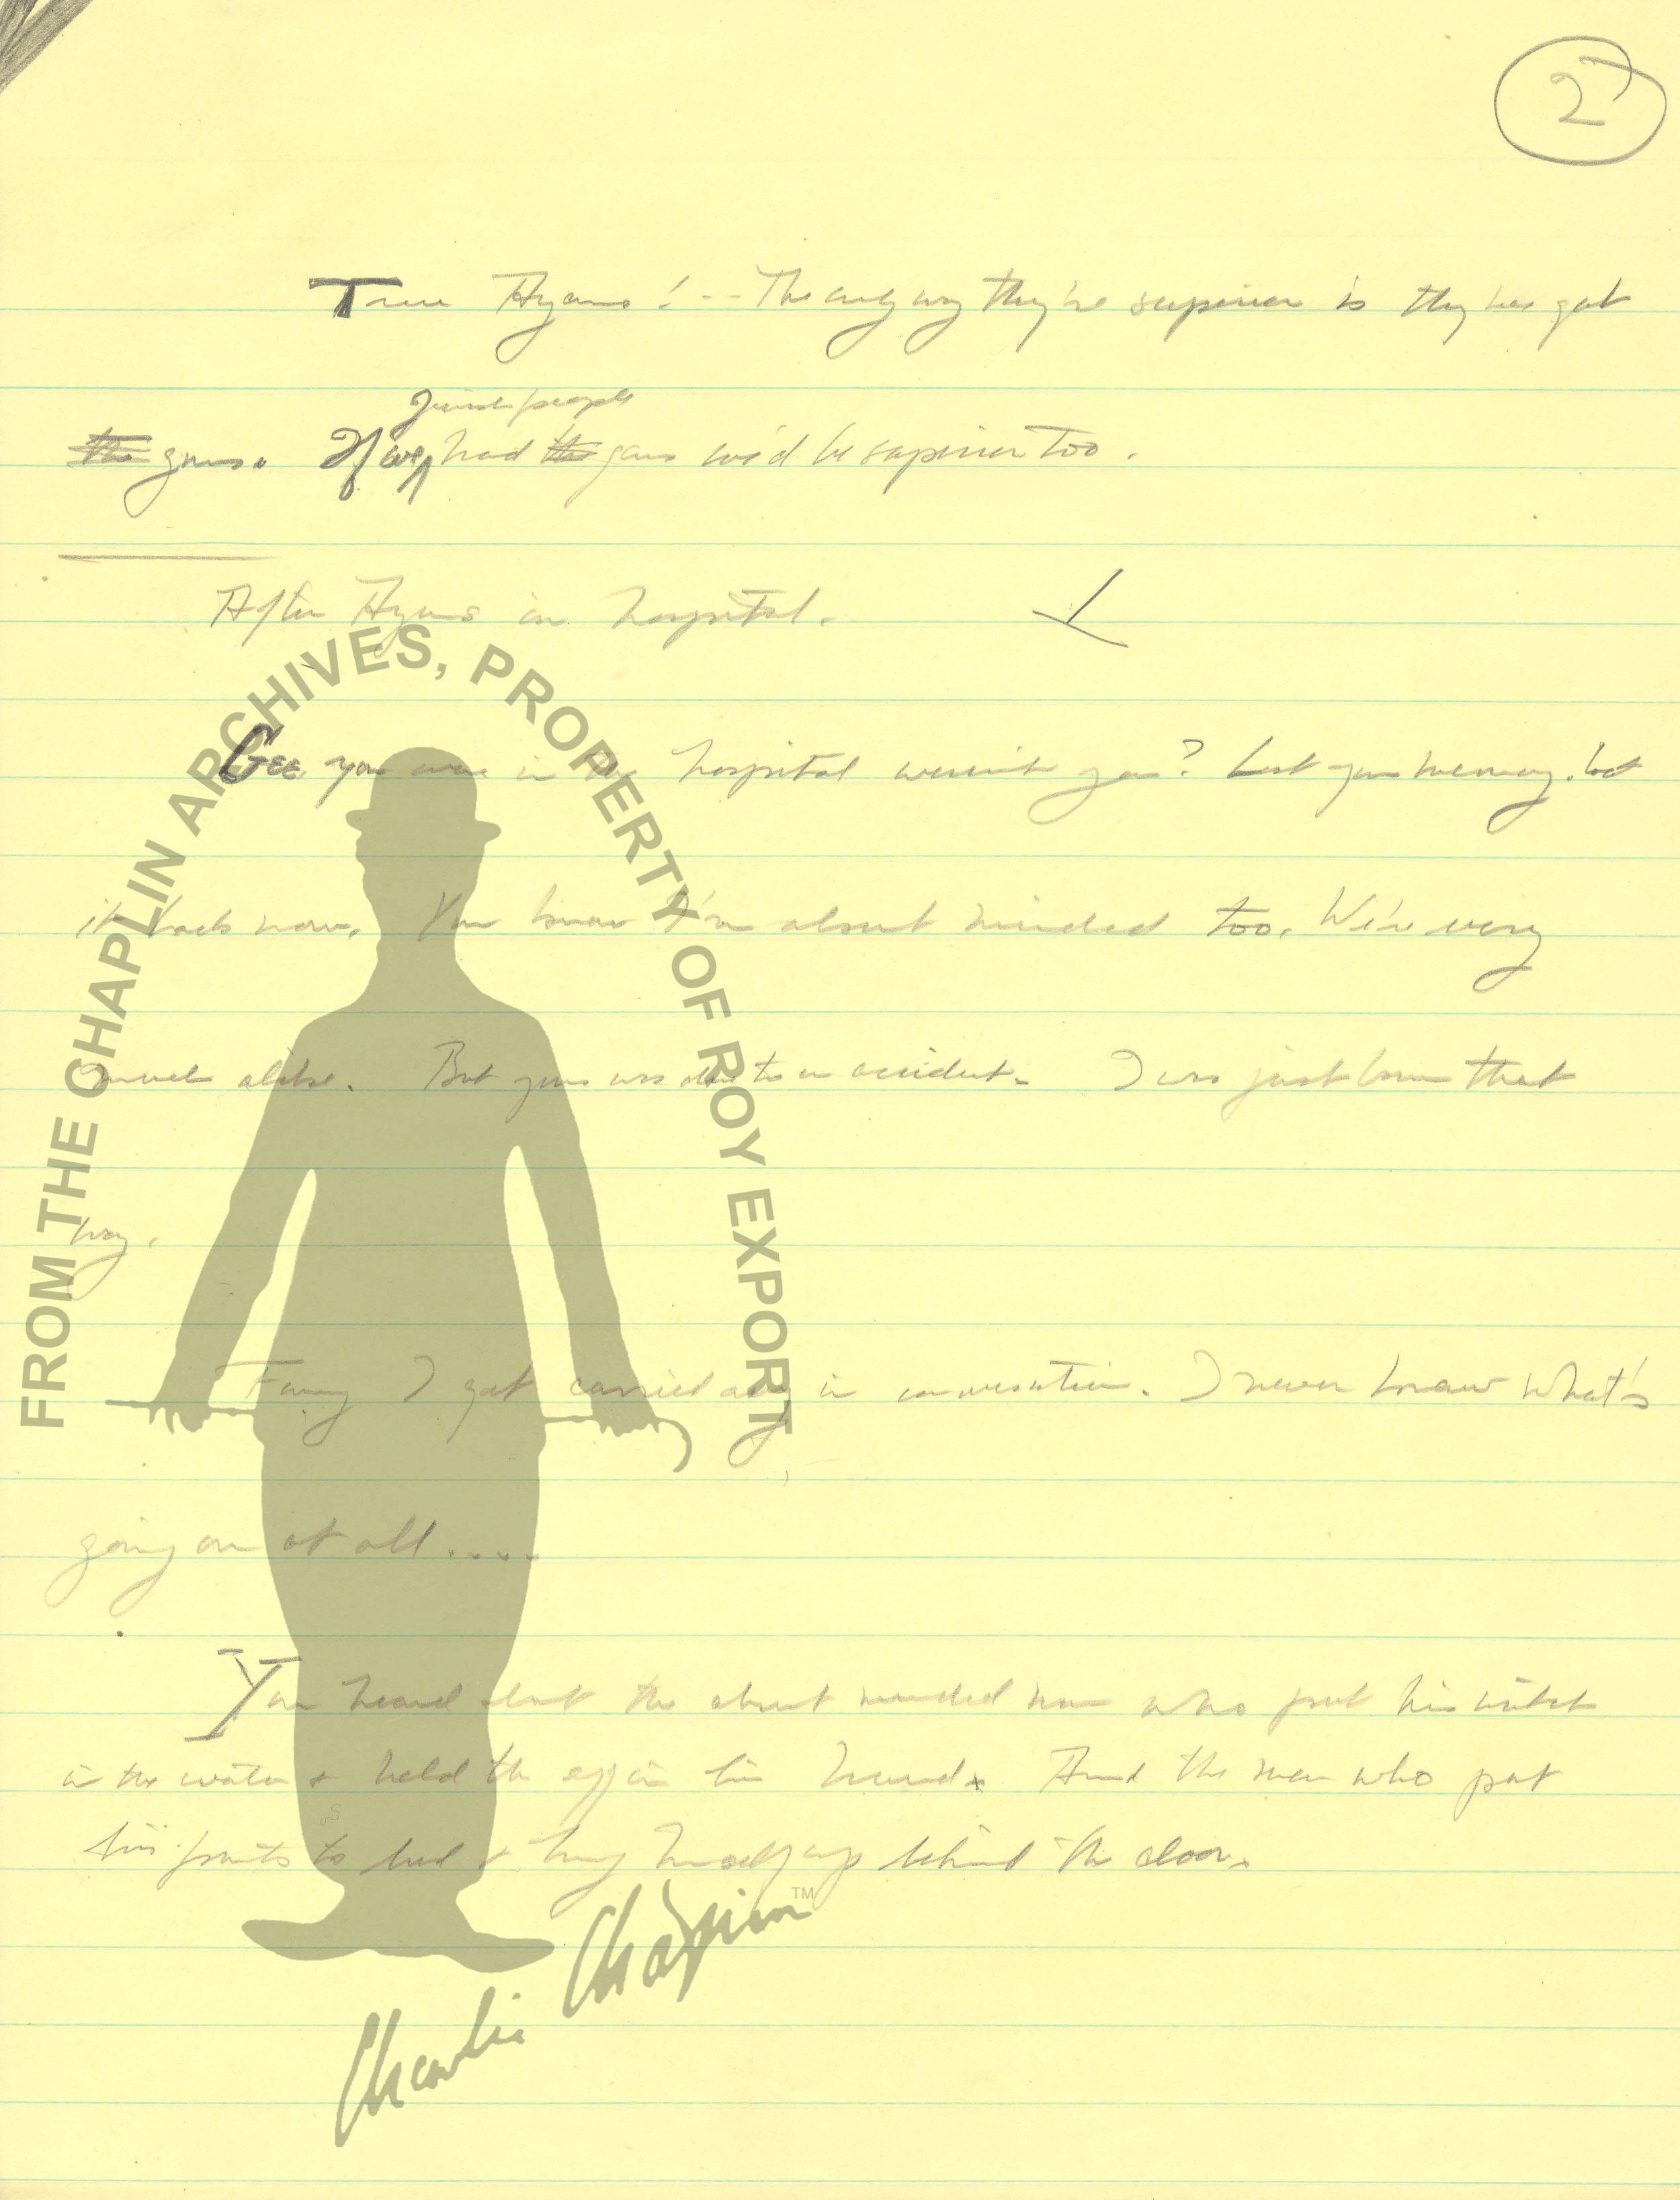 2
Hyams! -- The only way they're superior is they've got
Jewish people
the guns. If we had the guns we'd be superior too.
After Hyams in hospital.
Gee you were in the hospital weren't you? Lost your memory. Got
it back now. You know I'm absent minded too. We're very
much alike. But yours was due to an accident. I was just born that
way.
Funny I get carried away in conversation. I never know what's
going on at all....
You heard about the absent minded man who put his watch
in the water & held the egg in his hand. And the man who put
his pants to bed & hung himself up behind the door.
FROM THE CHAPLIN ARCHIVES, PROPERTY OF ROY EXPORT
Charlie Chaplin™